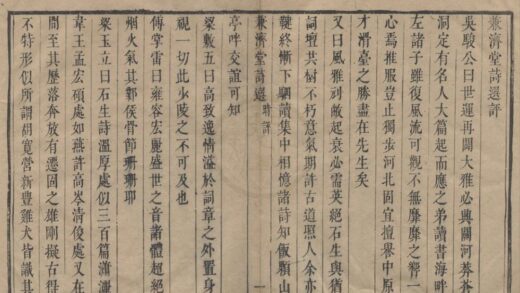 兼濟堂詩選評
吳駿公曰世運再開大雅必興關河莽蒼
洞定有名人大篇起而應之弟讀書海畔
左諸子雖復風流可觀不無靡靡之響一
心焉推服豈止獨步河北固宜擅譽中原
才滑臺之勝盡在先生矣
又曰風雅刓敝起衰必需英絕石生與猶
詞壇共樹不朽意氣期許古道照人余亦
鞬終慚下駟讀集中相憶諸詩知飯顆山
亭呼交誼可知
兼濟堂詩選
詩評
一
梁數五曰高致逸情溢於詞章之外置身
視一切此少陵之不可及也
傅掌雷曰雍容宏麗盛世之音諸體超絕
烟火氣其鄴侯骨節珊珊耶
梁玉立曰石生詩溫厚處似三百篇瀟灑
韋王孟宏碩處如燕許高岑清俊處又在
間至其歷落奔放有遷固之雄剛擬古得
不特形似所謂胡寬營新豐雞犬皆識其